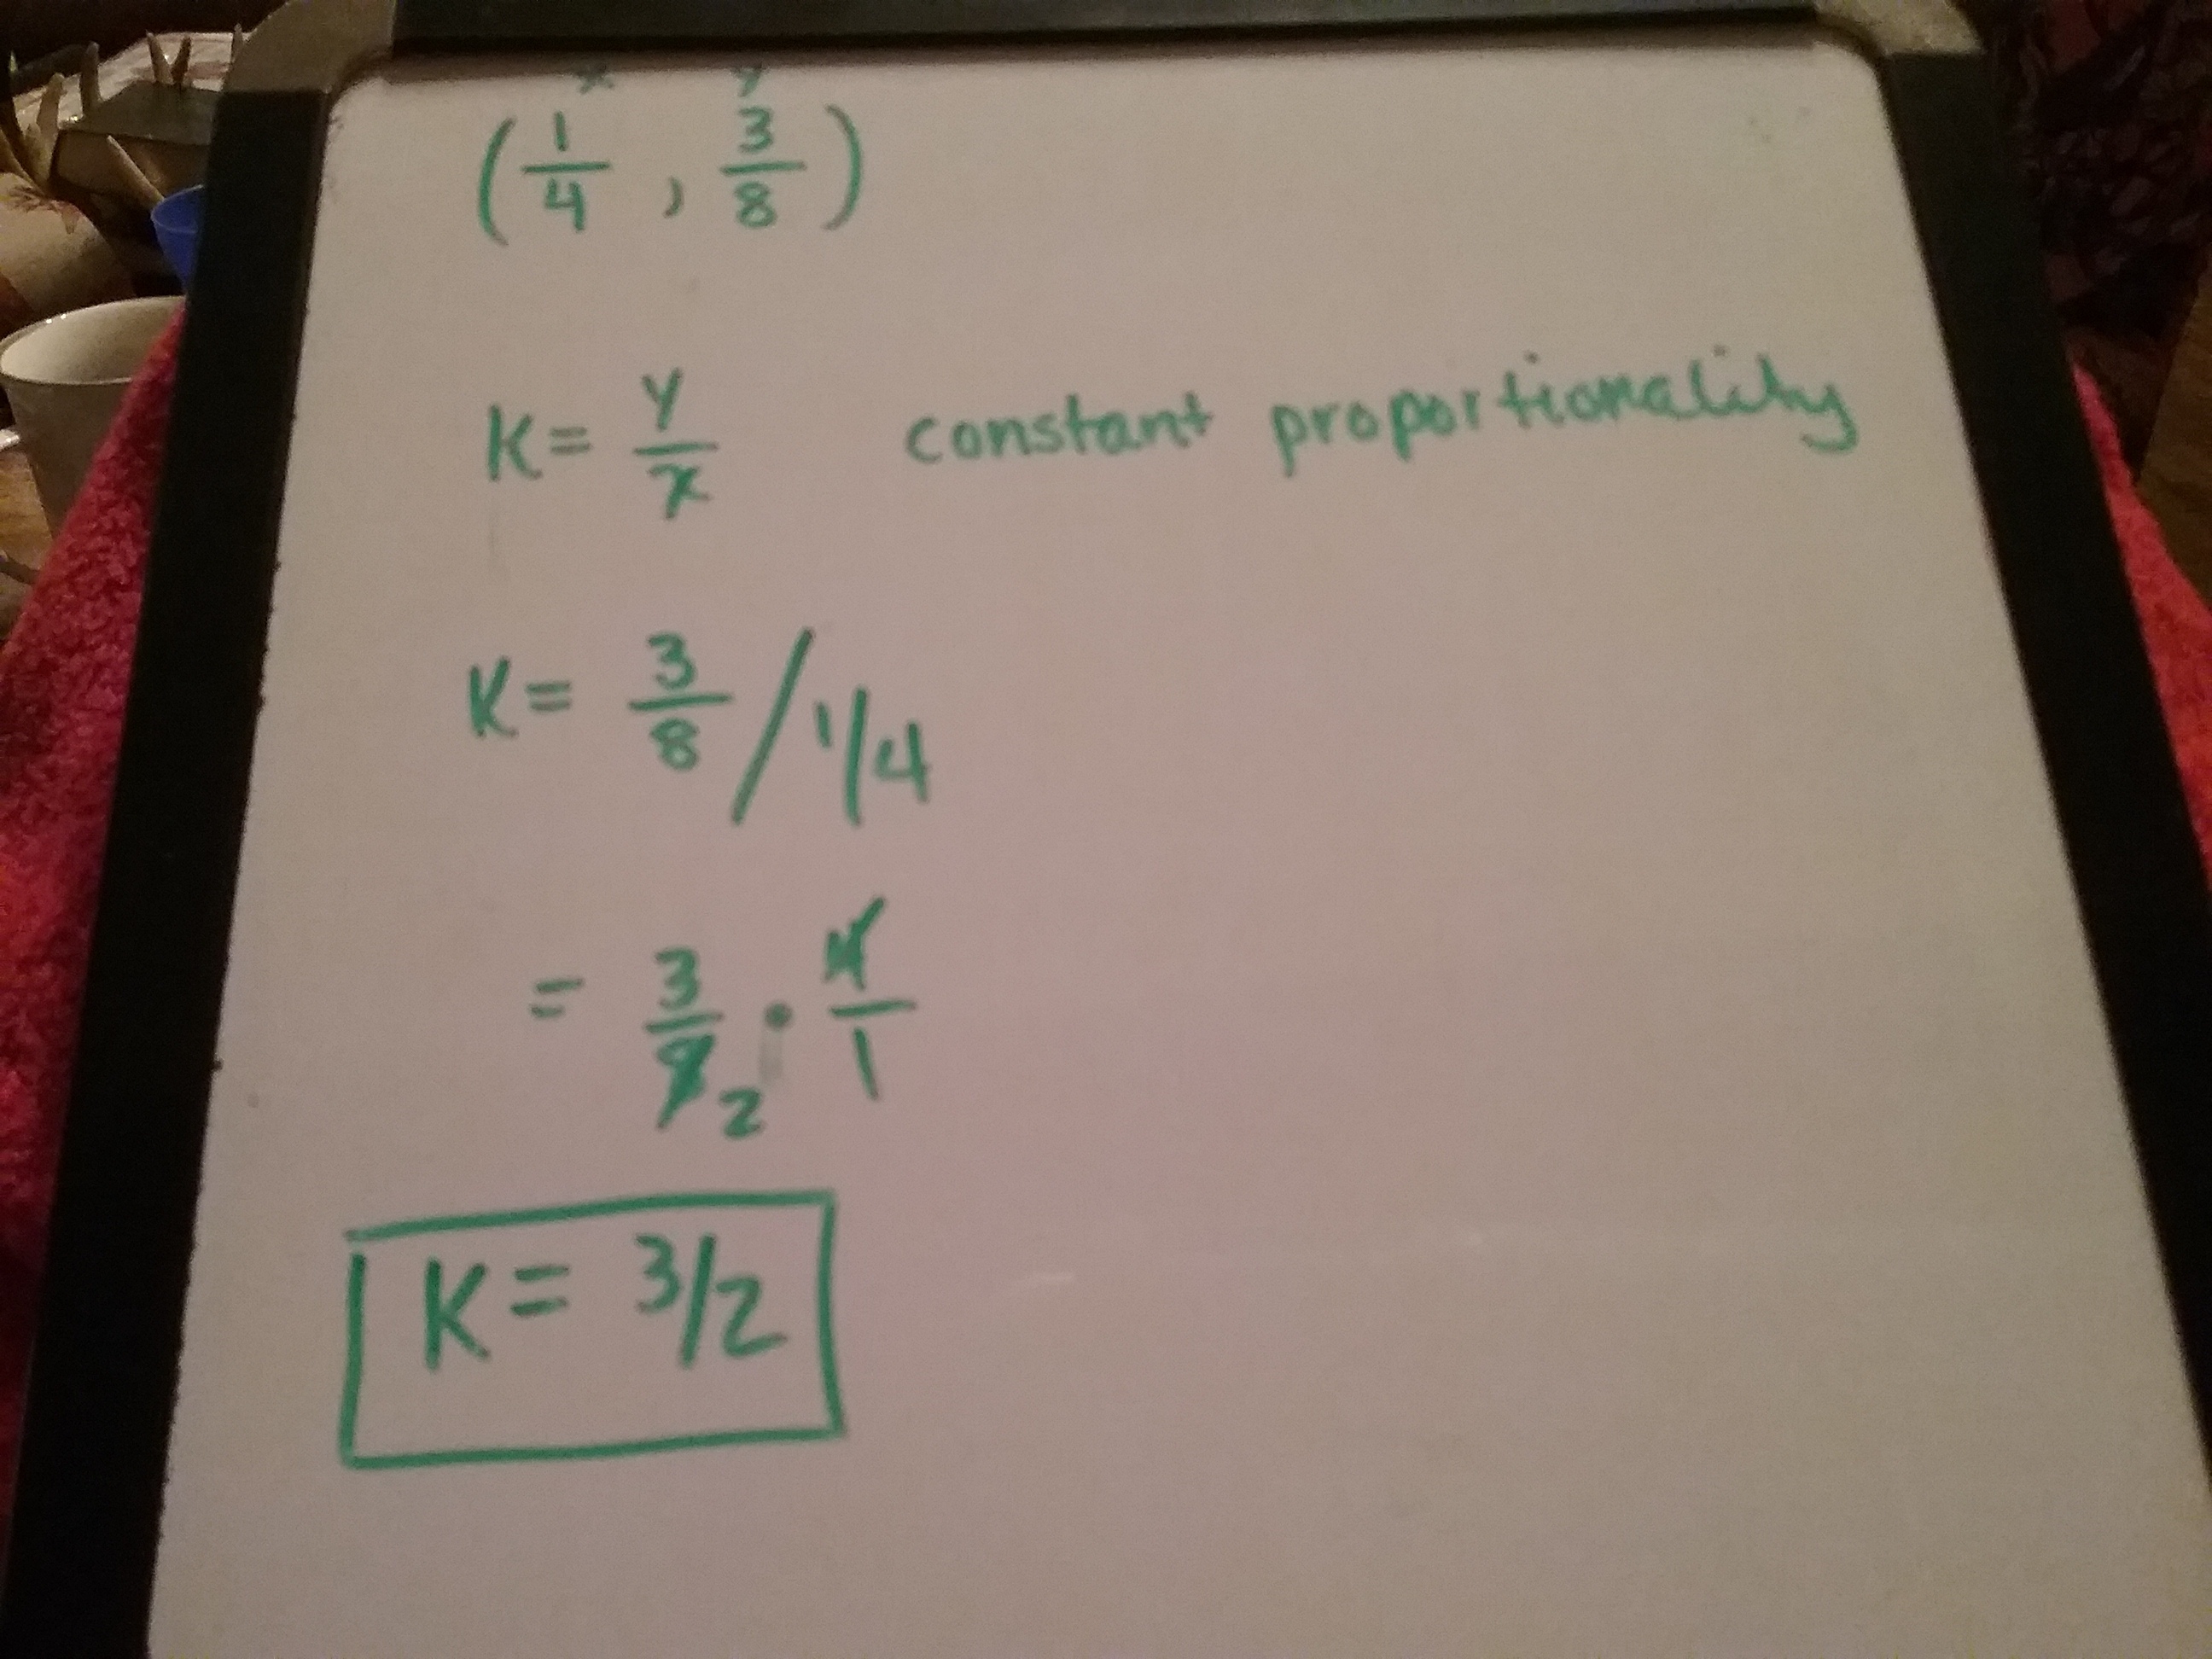 x y
(1/4, 3/8)
K = y/x constant proportionality
K = 3/8 / 1/4
= 3/8 2 · 4/1
K = 3/2